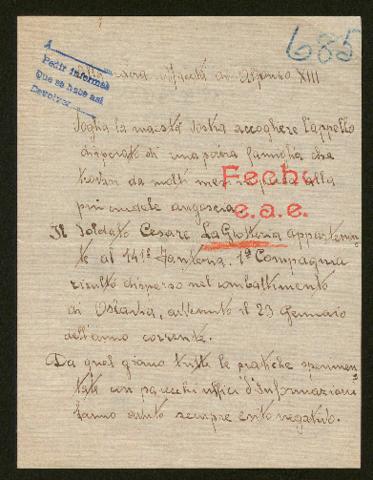 685
A
Pedir informes
Que se hace así
Devolver
Maestà di Alfonso XIII
Voglia la maestà vostra accogliere l'appello
disperato di una povera famiglia che
trovasi da molti mesi in preda alla
più crudele angoscia.
Fecho
e.a.e.
Il Soldato Cesare La Giotteria appartenen-
te al 141° Fanteria, 1ª Compagnia
risultò disperso nel combattimento
di Oslavia, avvenuto il 23 Gennaio
dell'anno corrente.
Da quel giorno tutte le pratiche sperimen-
tate con parecchi uffici d'Informazioni
hanno avuto sempre esito negativo.